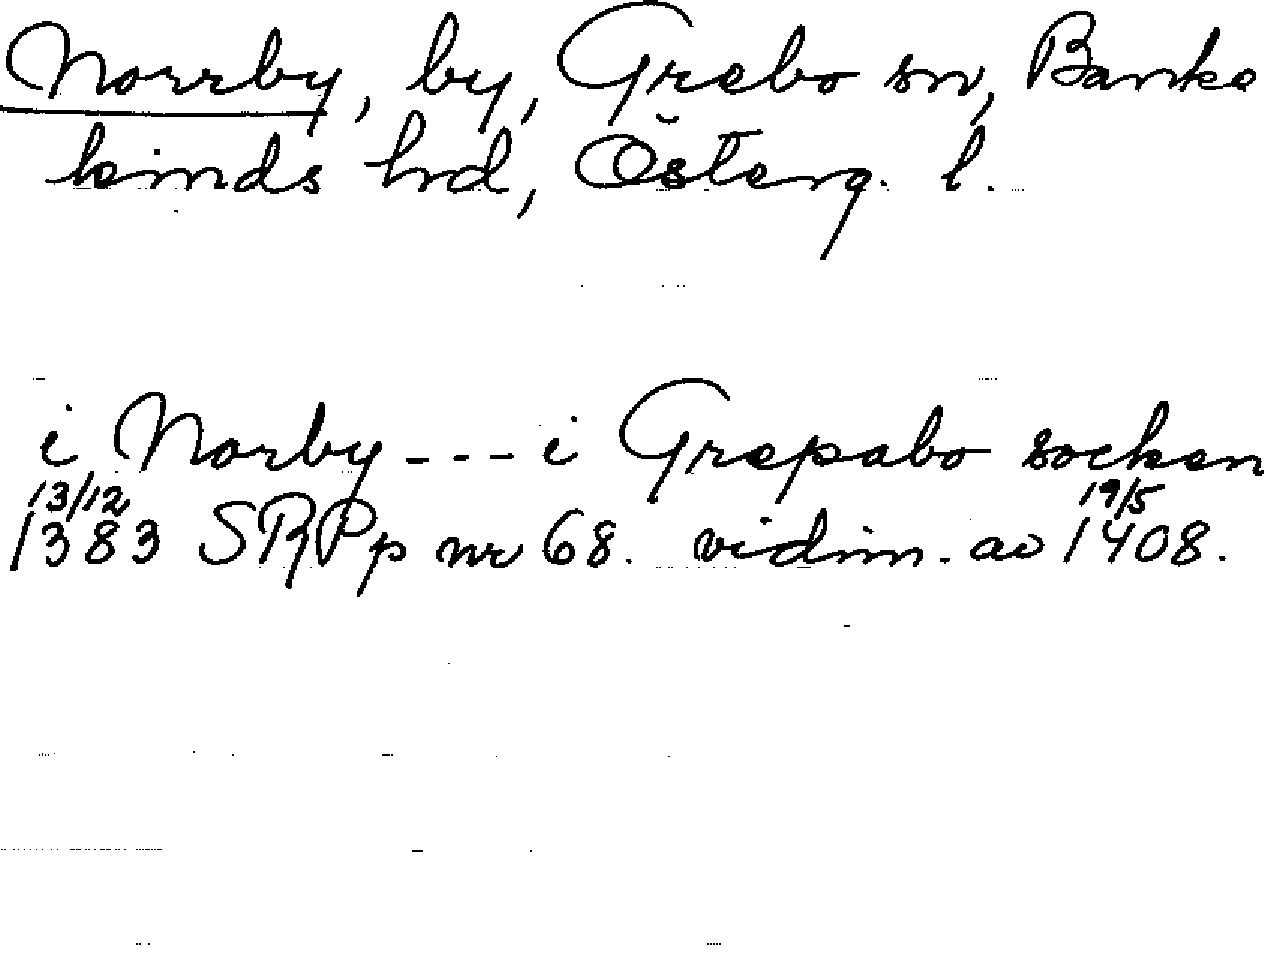 Norrby, by, Grebo sn, Banke
kinds hrd, Österg. l.
i Norby --- i Grepabo socken
13/12 19/5
1383 SRPp nr 68. vidim. av 1408.